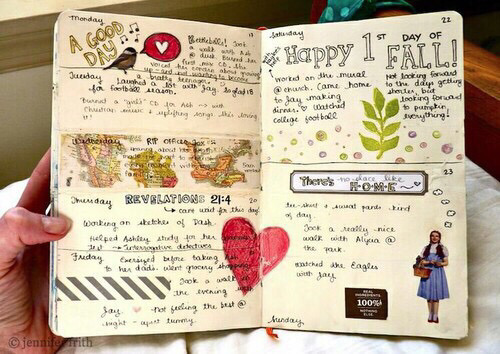 Monday
A GOOD DAY
Kettlebells! Took
a walk with Ash
@ dusk. Burned her
first new CD. She
voiced her concerns about growing
up - and not wanting to become
Tuesday a bratty teenager.
Laughed a lot with Jay. So glad
for football season. 18
Burned a "wild" CD for Ash → with
Christian music + uplifting songs. She's loving
it!
Wednesday RIP Officer
19
Thursday REVELATIONS 21:4 20
→ can't wait for this day!
Working on sketches of Dash.
Helped Ashley study for her
test → Intervention detectives
Friday Exercised before taking Ash
to her dads. Went grocery shopping.
Took a walk
the evening with
Jay. ♥ not feeling the best @
night - upset tummy.
Saturday 22
Happy 1ST DAY OF
FALL!
Worked on the mural
@ church. Came home
to Jay making
dinner. ♥ Watched
college football
Not looking forward
to the days getting
shorter, but
looking forward
to pumpkin
everything!
23
There's no place like
H·O·M·E
Tee-shirt + sweat pants kind
of day.
Took a really nice
walk with Alycia @
the park.
Watched the Eagles
with Jay
REAL
INGREDIENTS
100%
NOTHING
ELSE
Sunday
© jennifer frith